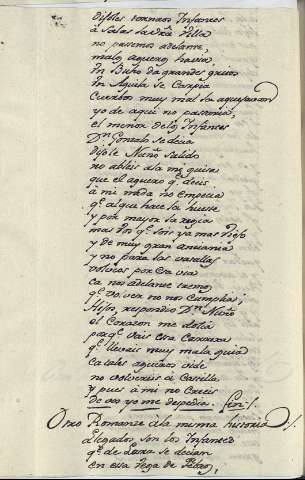 dijoles tornaos Infantes
à Salas la vra Villa
no passemos adelante,
malos agueros havia
un Buho da grandes gritos
un Aguila se carpia
cuerbos muy mal la aquejavan
yo de aqui no passaria,
el menor de los Infantes
Dn Gonzalo se decia
dijole Nuño Salido
no ableis a la mi guisa
que el aguero qe decis
à mi nada no empecia
qe al que hace la hueste
y por mayor la regia
mas vn qe sois ya mas viejo
y de muy gran anciania
y no para las vatallas
volveos por esa via
ca nos adelante iremos
qe volver no nos cumplia;
Hijos, respondió Dn Nuño
el corazon me dolia
porqe vais esa carrera
qe llevais muy mala guia
ca tales agueros oide
no volvereis à Castilla
y pues à mi no creeis
de vos yo me despedia. fin/.
Otro Romance à la misma historia /.
Llegados son los Infantes
qe de Lara se decian
en esa vega de Febros,